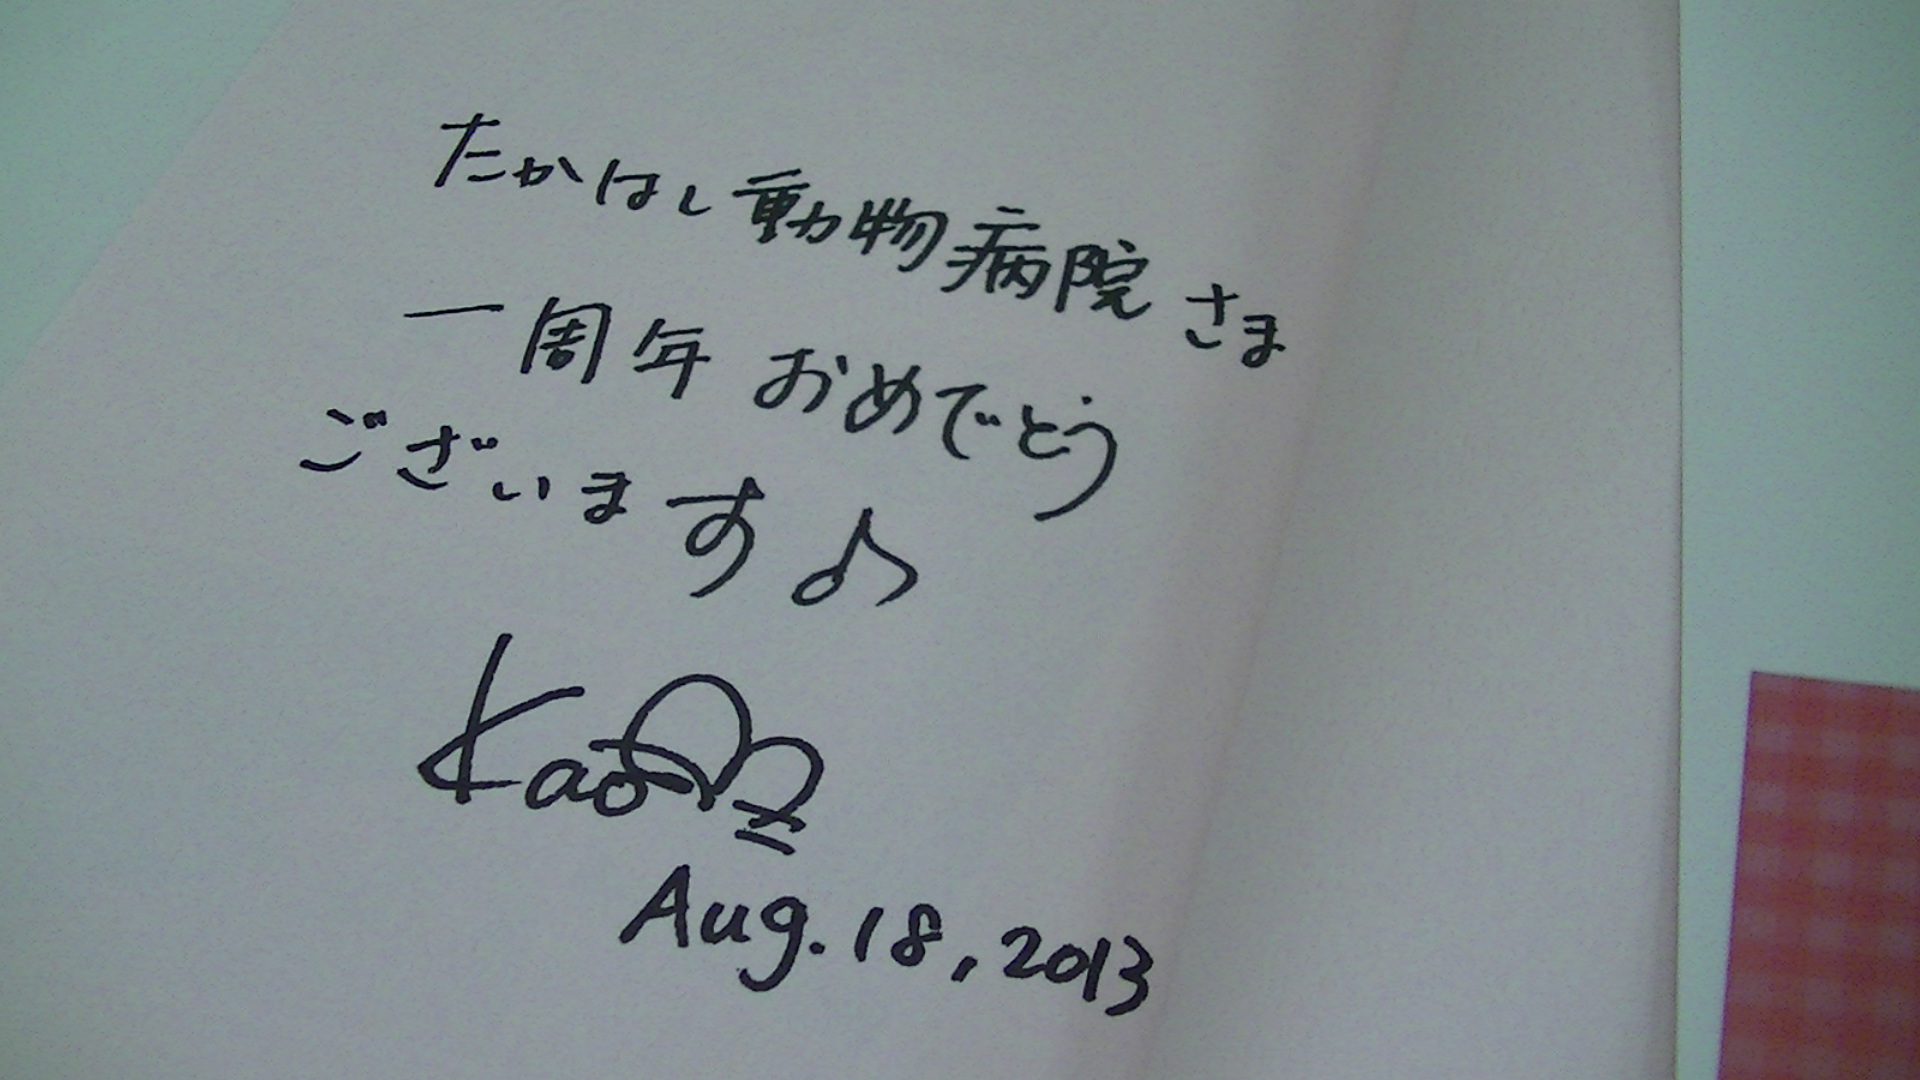 たかはし動物病院さま
一周年おめでとう
ございます♪
Aug. 18, 2013